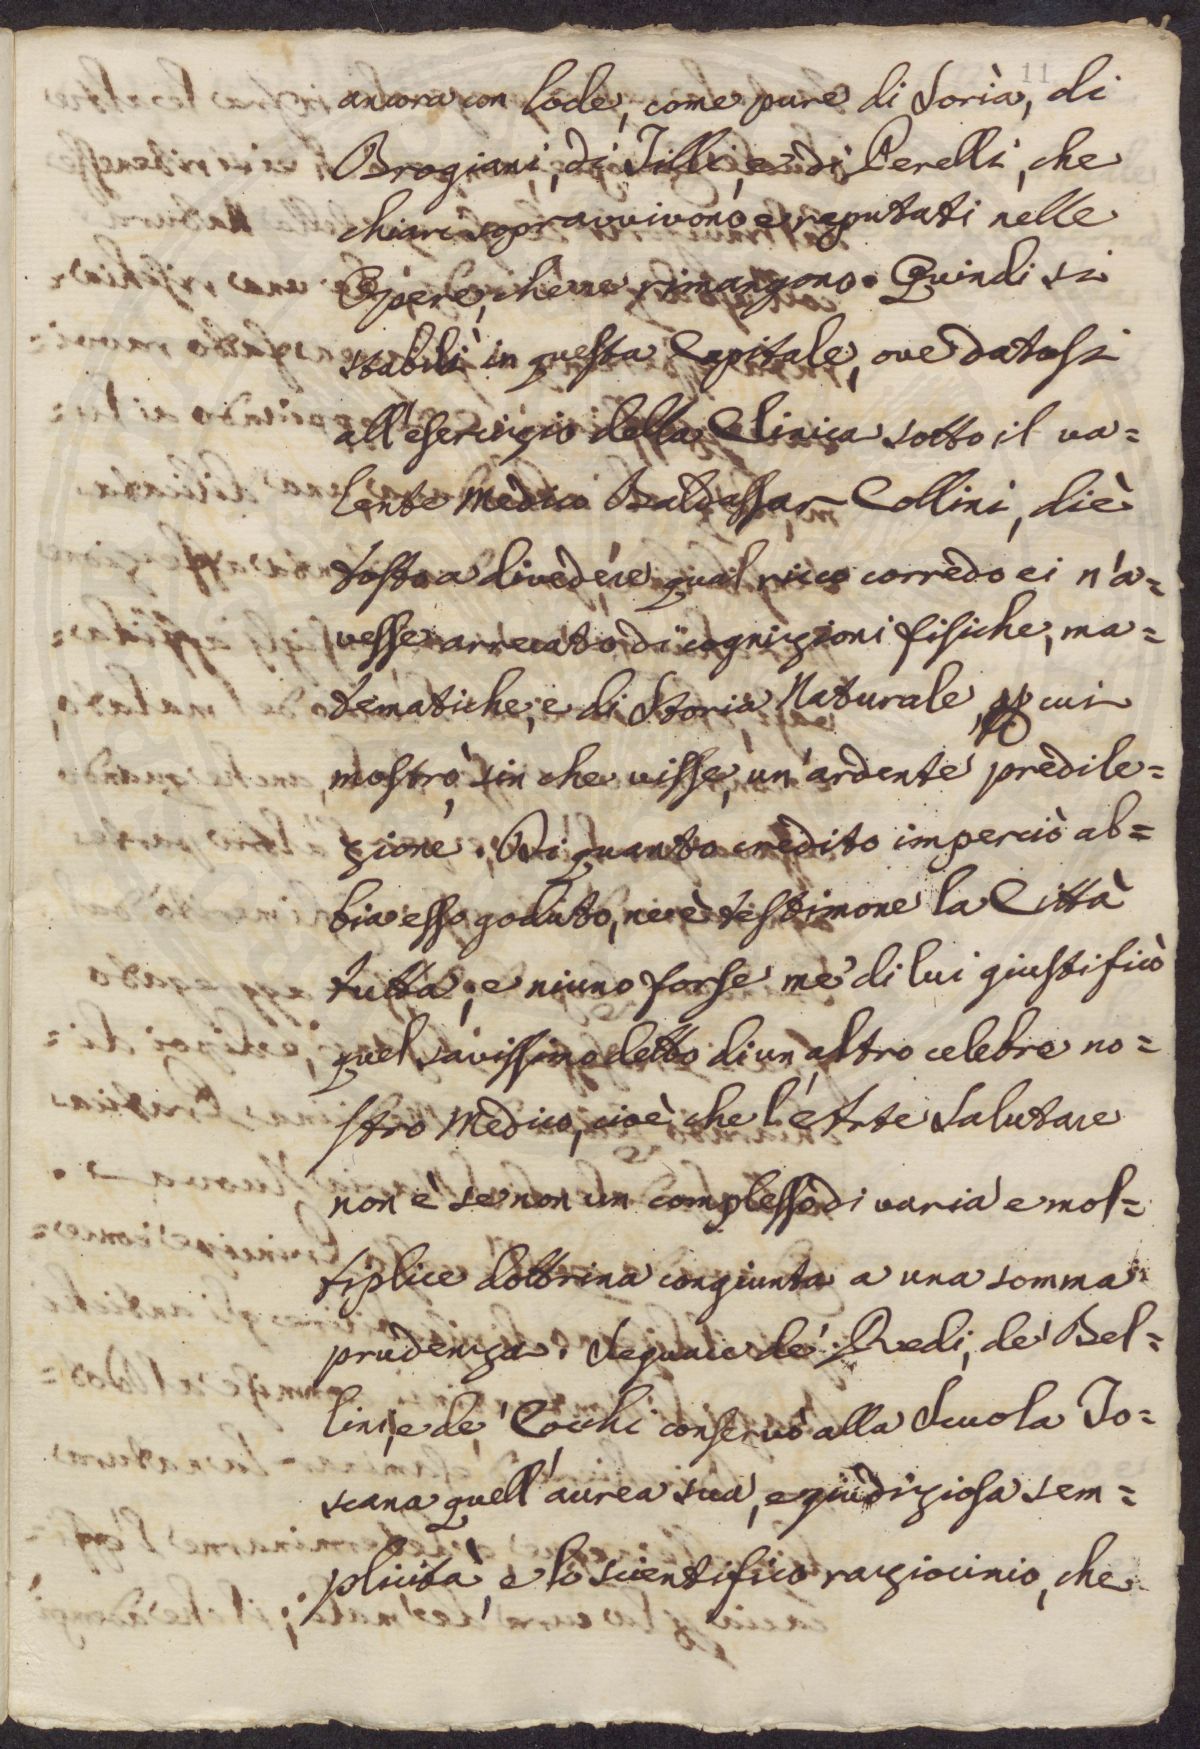 11
ancora con lode, come pure di Soria, di
Brogiani, di Tilli, e di Perelli, che
chiari sopravvivono e reputati nelle
Opere, che ne rimangono. Quindi si
stabilì in questa Capitale, ove datosi
all'esercizio della Clinica sotto il va=
lente Medico Baldassar Collini, diè
tosto a divedere qual ricco corredo ei n'a=
vesse arrecato di cognizioni fisiche, ma=
tematiche, e di Storia Naturale, cui
mostrò, sin che visse, un'ardente predile=
zione. Di quanto credito imperciò ab=
bia esso goduto, ne è testimone la Città
tutta; e niuno forse me' di lui giustificò
quel savissimo detto di un altro celebre no=
stro Medico, cioè che l'Arte Salutare
non è se non un complesso di varia e mol=
tiplice dottrina congiunta a una somma
prudenza. Seguace de' Redi, de' Bel=
lini, e de' Cocchi conservò alla Scuola To=
scana quell'aurea sua, e giudiziosa sem=
plicità, e lo scientifico raziocinio, che